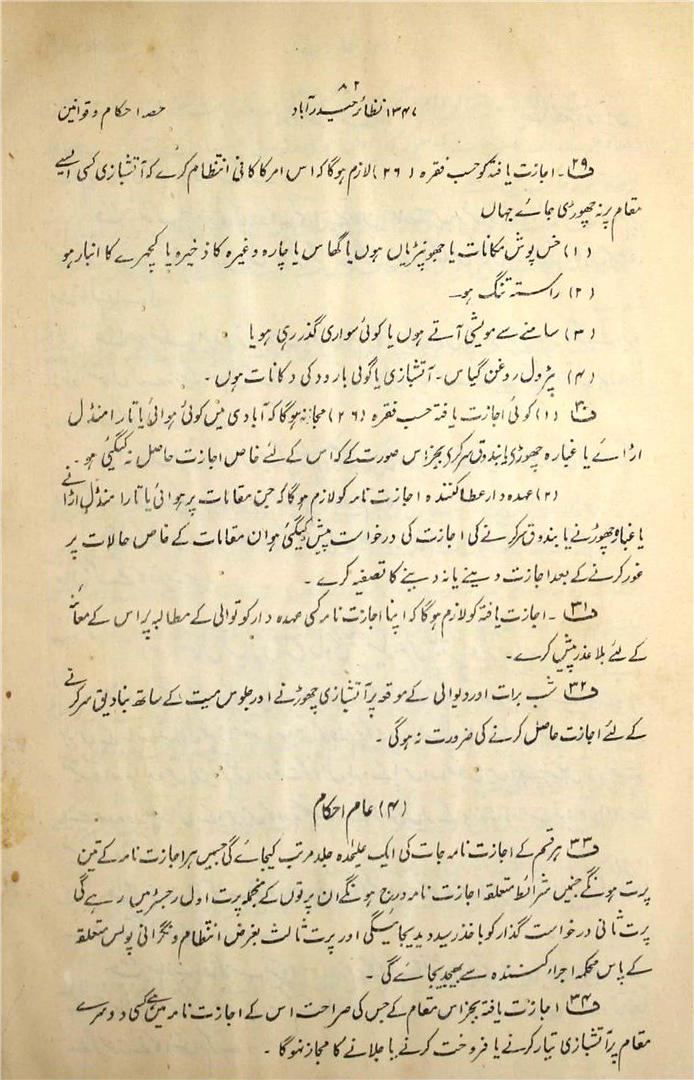 ۸۲
۱۳۴۷ نظائر حیدرآباد حصہ احکام و قوانین
ف۲۹۔ اجازت یافتہ کو حسب فقرہ (۲۶) لازم ہوگا کہ اس امر کا کافی انتظام کرے کہ آتشبازی کسی ایسے
مقام پر نہ چھوڑی جائے جہاں
(۱) خس پوش مکانات یا جھونپڑیاں ہوں یا گھاس یا چارہ وغیرہ کا ذخیرہ یا کچہرے کا انبار ہو
(۲) راستہ تنگ ہو۔
(۳) سامنے سے مویشی آتے ہوں یا کوئی سواری گذر رہی ہو یا
(۴) پٹرول روغن گیاس۔ آتشبازی یا گولی بارود کی دکانات ہوں۔
ف۳۰ (۱) کوئی اجازت یافتہ حسب فقرہ (۲۶) مجاز نہ ہوگا کہ آبادی میں کوئی ہوائی یا تارا منڈل
اڑائے یا غبارہ چھوڑے یا بندوق سر کرے بجز اس صورت کے کہ اس کے لئے خاص اجازت حاصل نہ کیگئی ہو۔
(۲) عہدہ دار عطا کنندہ اجازت نامہ کو لازم ہوگا کہ جن مقامات پر ہوائی یا تارا منڈل اڑانے
یا غبارہ چھوڑنے یا بندوق سر کرنے کی اجازت کی درخواست پیش کیگئی ہو ان مقامات کے خاص حالات پر
غور کرنے کے بعد اجازت دینے یا نہ دینے کا تصفیہ کرے۔
ف۳۱۔ اجازت یافتہ کو لازم ہوگا کہ اپنا اجازت نامہ کسی عہدہ دار کوتوالی کے مطالبہ پر اس کے معائنہ
کے لئے بلا عذر پیش کرے۔
ف۳۲ شب برات اور دیوالی کے موقعہ پر آتشبازی چھوڑنے اور جلوس میت کے ساتھ بنادیق سر کرنے
کے لئے اجازت حاصل کرنے کی ضرورت نہ ہوگی۔
(۴) عام احکام
ف۳۳ ہر قسم کے اجازت نامہ جات کی ایک علیحدہ جلد مرتب کیجائے گی جسمیں ہر اجازت نامہ کے تین
پرت ہونگے جنمیں شرائط متعلقہ اجازت نامہ درج ہونگے ان پرتوں کے منجملہ پرت اول رجسٹر میں رہے گی
پرت ثانی درخواست گذار کو باخذ رسید دیدیجائیگی اور پرت ثالث بغرض انتظام و نگرانی پولس متعلقہ
کے پاس محکمہ اجراء کنندہ سے بھیجدیجائے گی۔
ف۳۴ اجازت یافتہ بجز اس مقام کے جس کی صراحت اس کے اجازت نامہ میں ہے کسی دوسرے
مقام پر آتشبازی تیار کرنے یا فروخت کرنے یا جلانے کا مجاز نہوگا۔